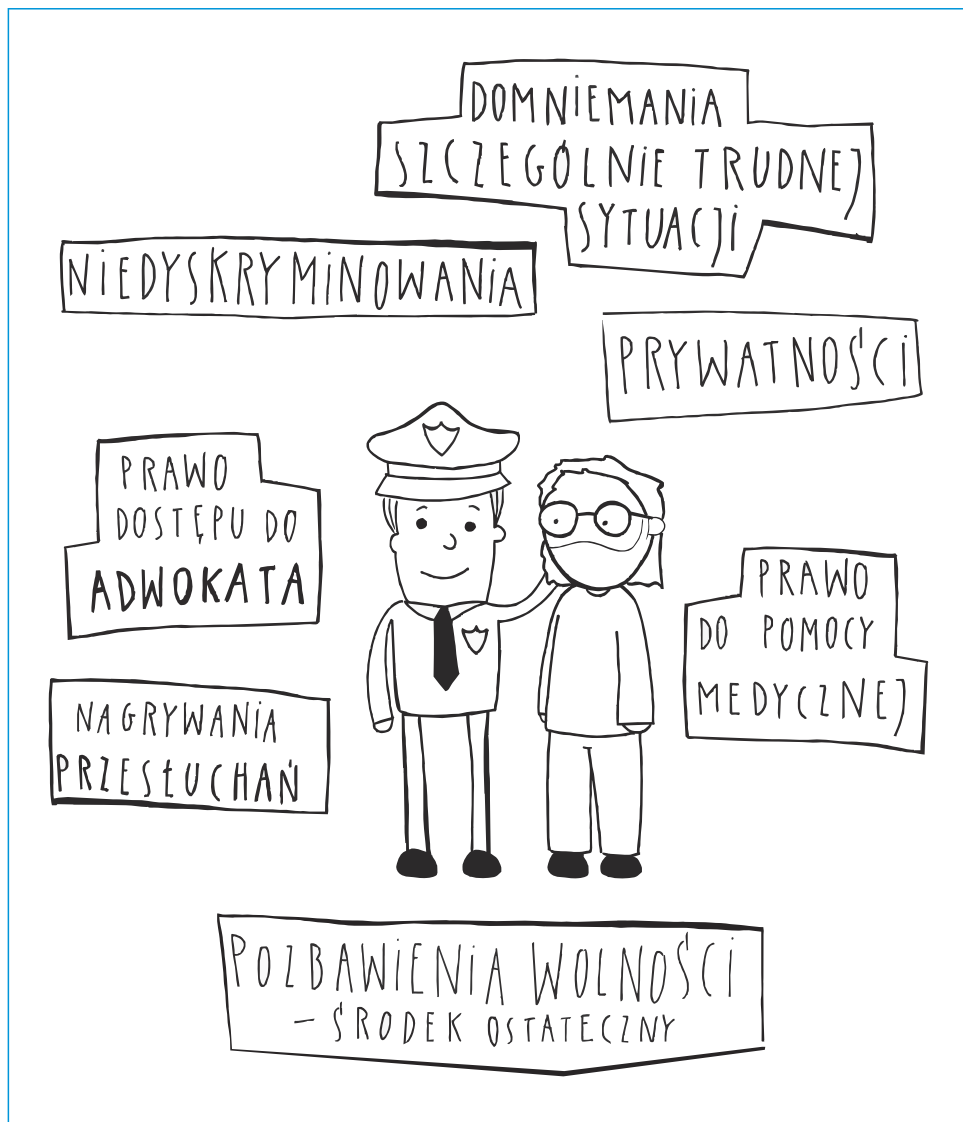 DOMNIEMANIA
SZCZEGÓLNIE TRUDNEJ
SYTUACJI
NIEDYSKRYMINOWANIA
PRYWATNOŚCI
PRAWO
DOSTĘPU DO
ADWOKATA
PRAWO
DO POMOCY
MEDYCZNEJ
NAGRYWANIA
PRZESŁUCHAŃ
POZBAWIENIA WOLNOŚCI
– ŚRODEK OSTATECZNY